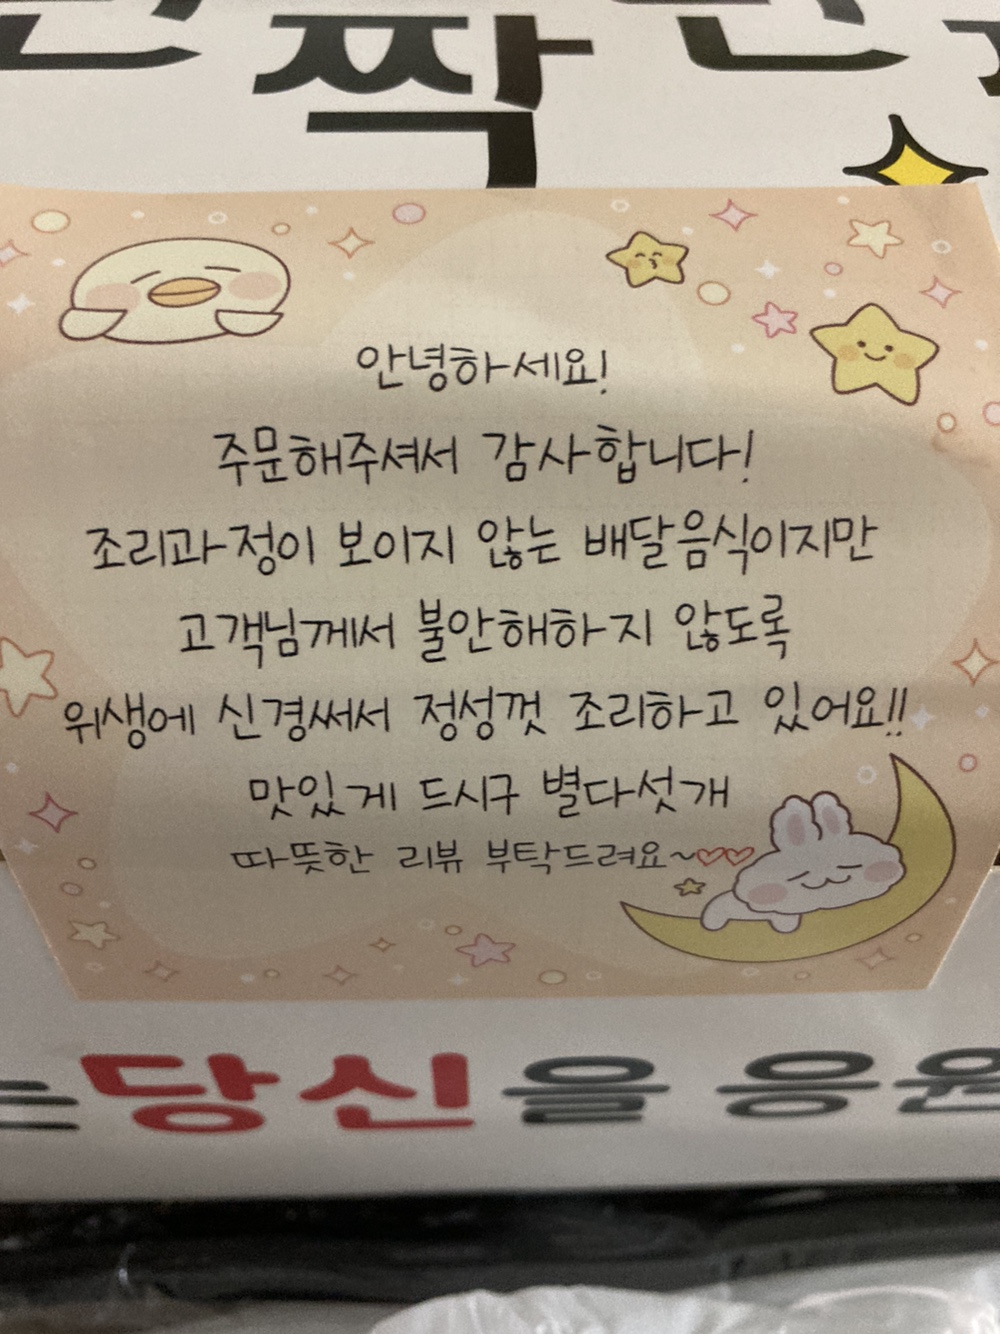 짝
안녕하세요!
주문해주셔서 감사합니다!
조리과정이 보이지 않는 배달음식이지만
고객님께서 불안해하지 않도록
위생에 신경써서 정성껏 조리하고 있어요!!
맛있게 드시구 별다섯개
따뜻한 리뷰 부탁드려요~♡♡
는 당신을 응원